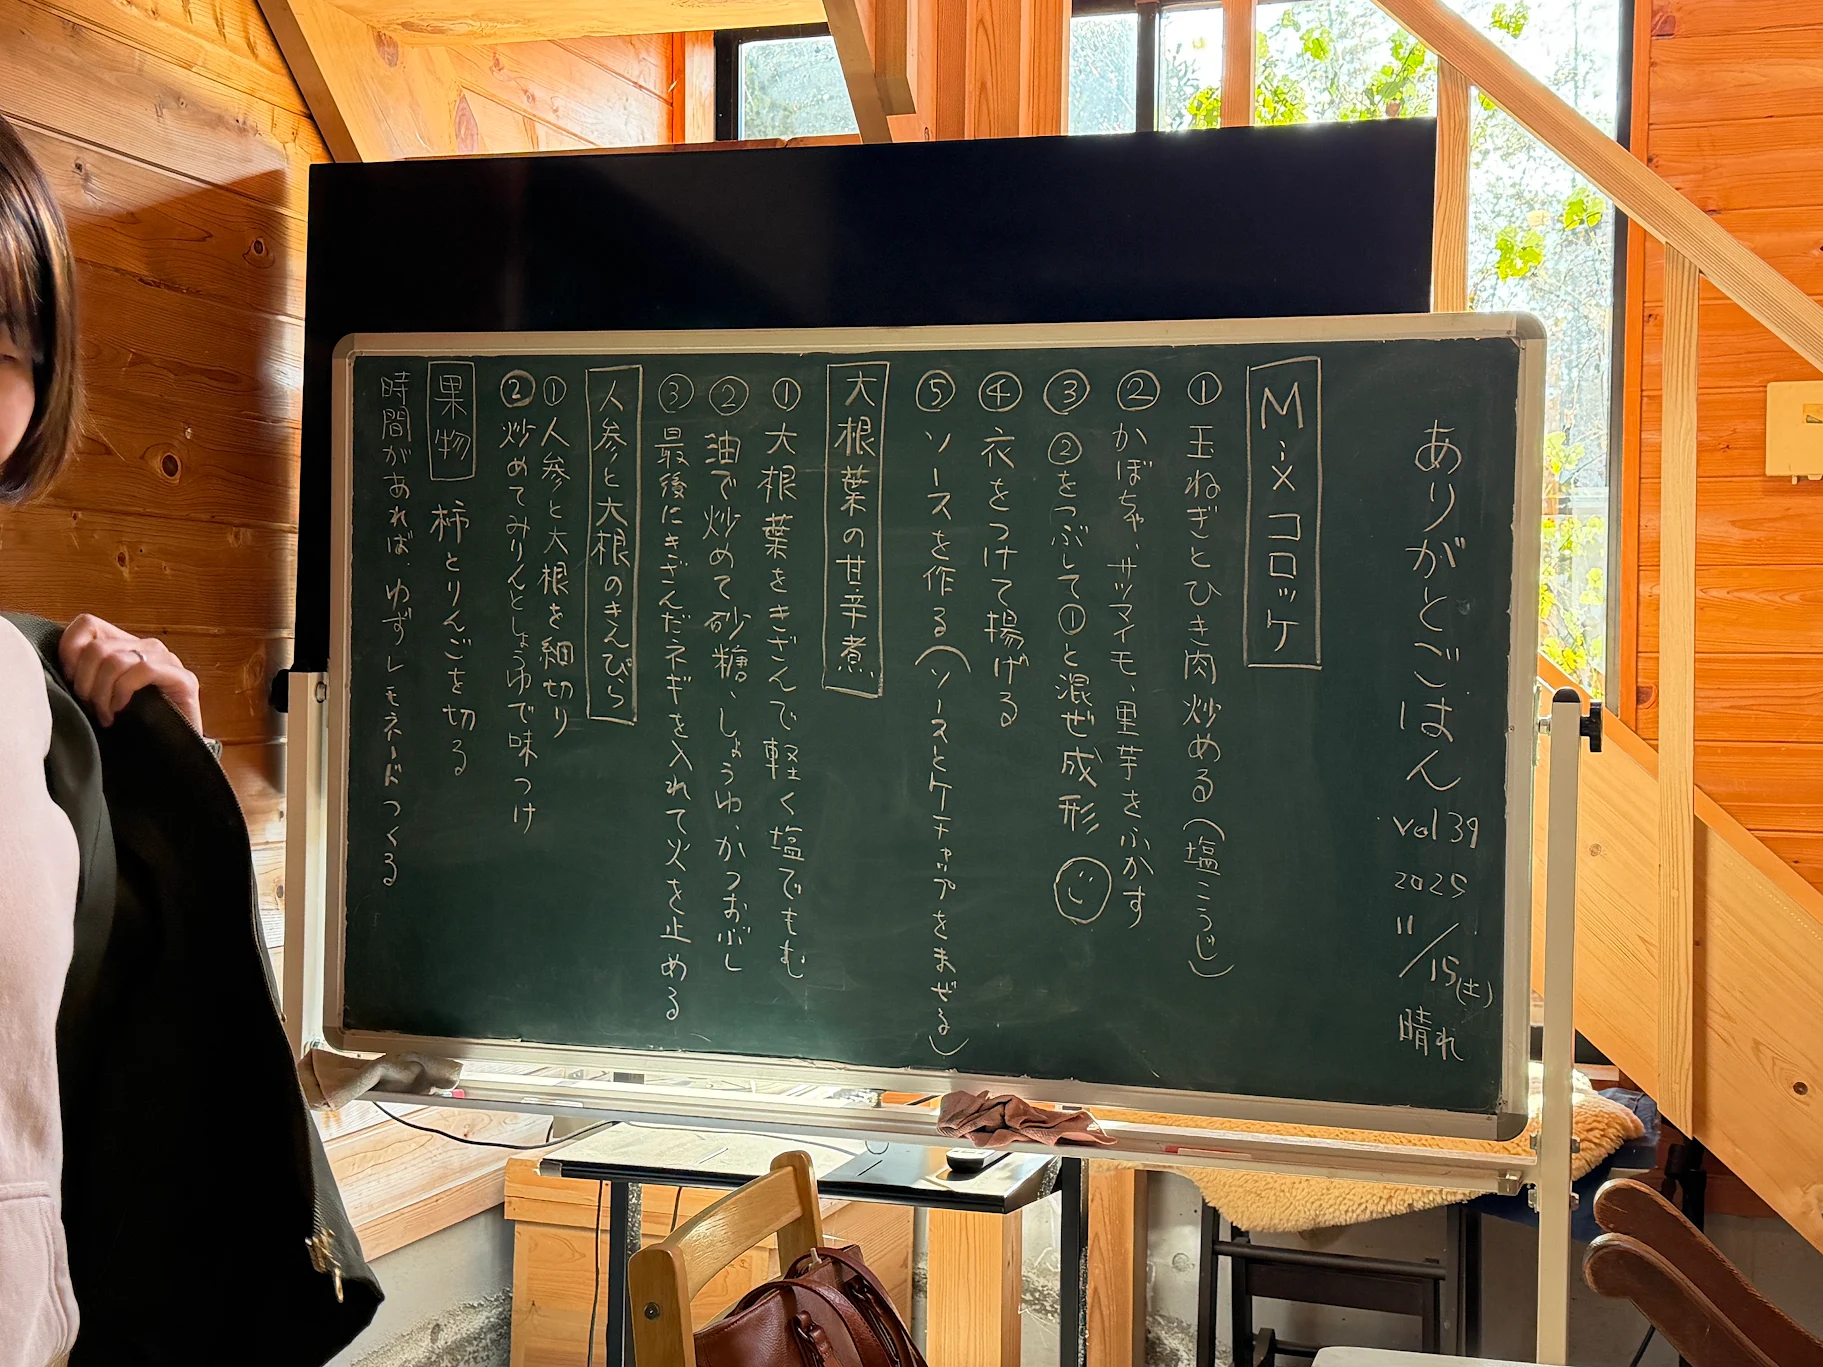 ありがとごはん vol 39 2025 11/15(土) 晴れ
Mixコロッケ
① 玉ねぎとひき肉炒める(塩こうじ)
② かぼちゃ、サツマイモ、里芋をふかす
③ ②をつぶして①と混ぜ成形
④ 衣をつけて揚げる
⑤ ソースを作る(ソースとケチャップをまぜる)
大根葉の甘辛煮
① 大根葉をきざんで軽く塩でもむ
② 油で炒めて砂糖、しょうゆ、かつおぶし
③ 最後にきざんだネギを入れて火を止める
人参と大根のきんぴら
① 人参と大根を細切り
② 炒めてみりんとしょうゆで味つけ
果物 柿とりんごを切る
時間があれば、ゆずレモネードつくる